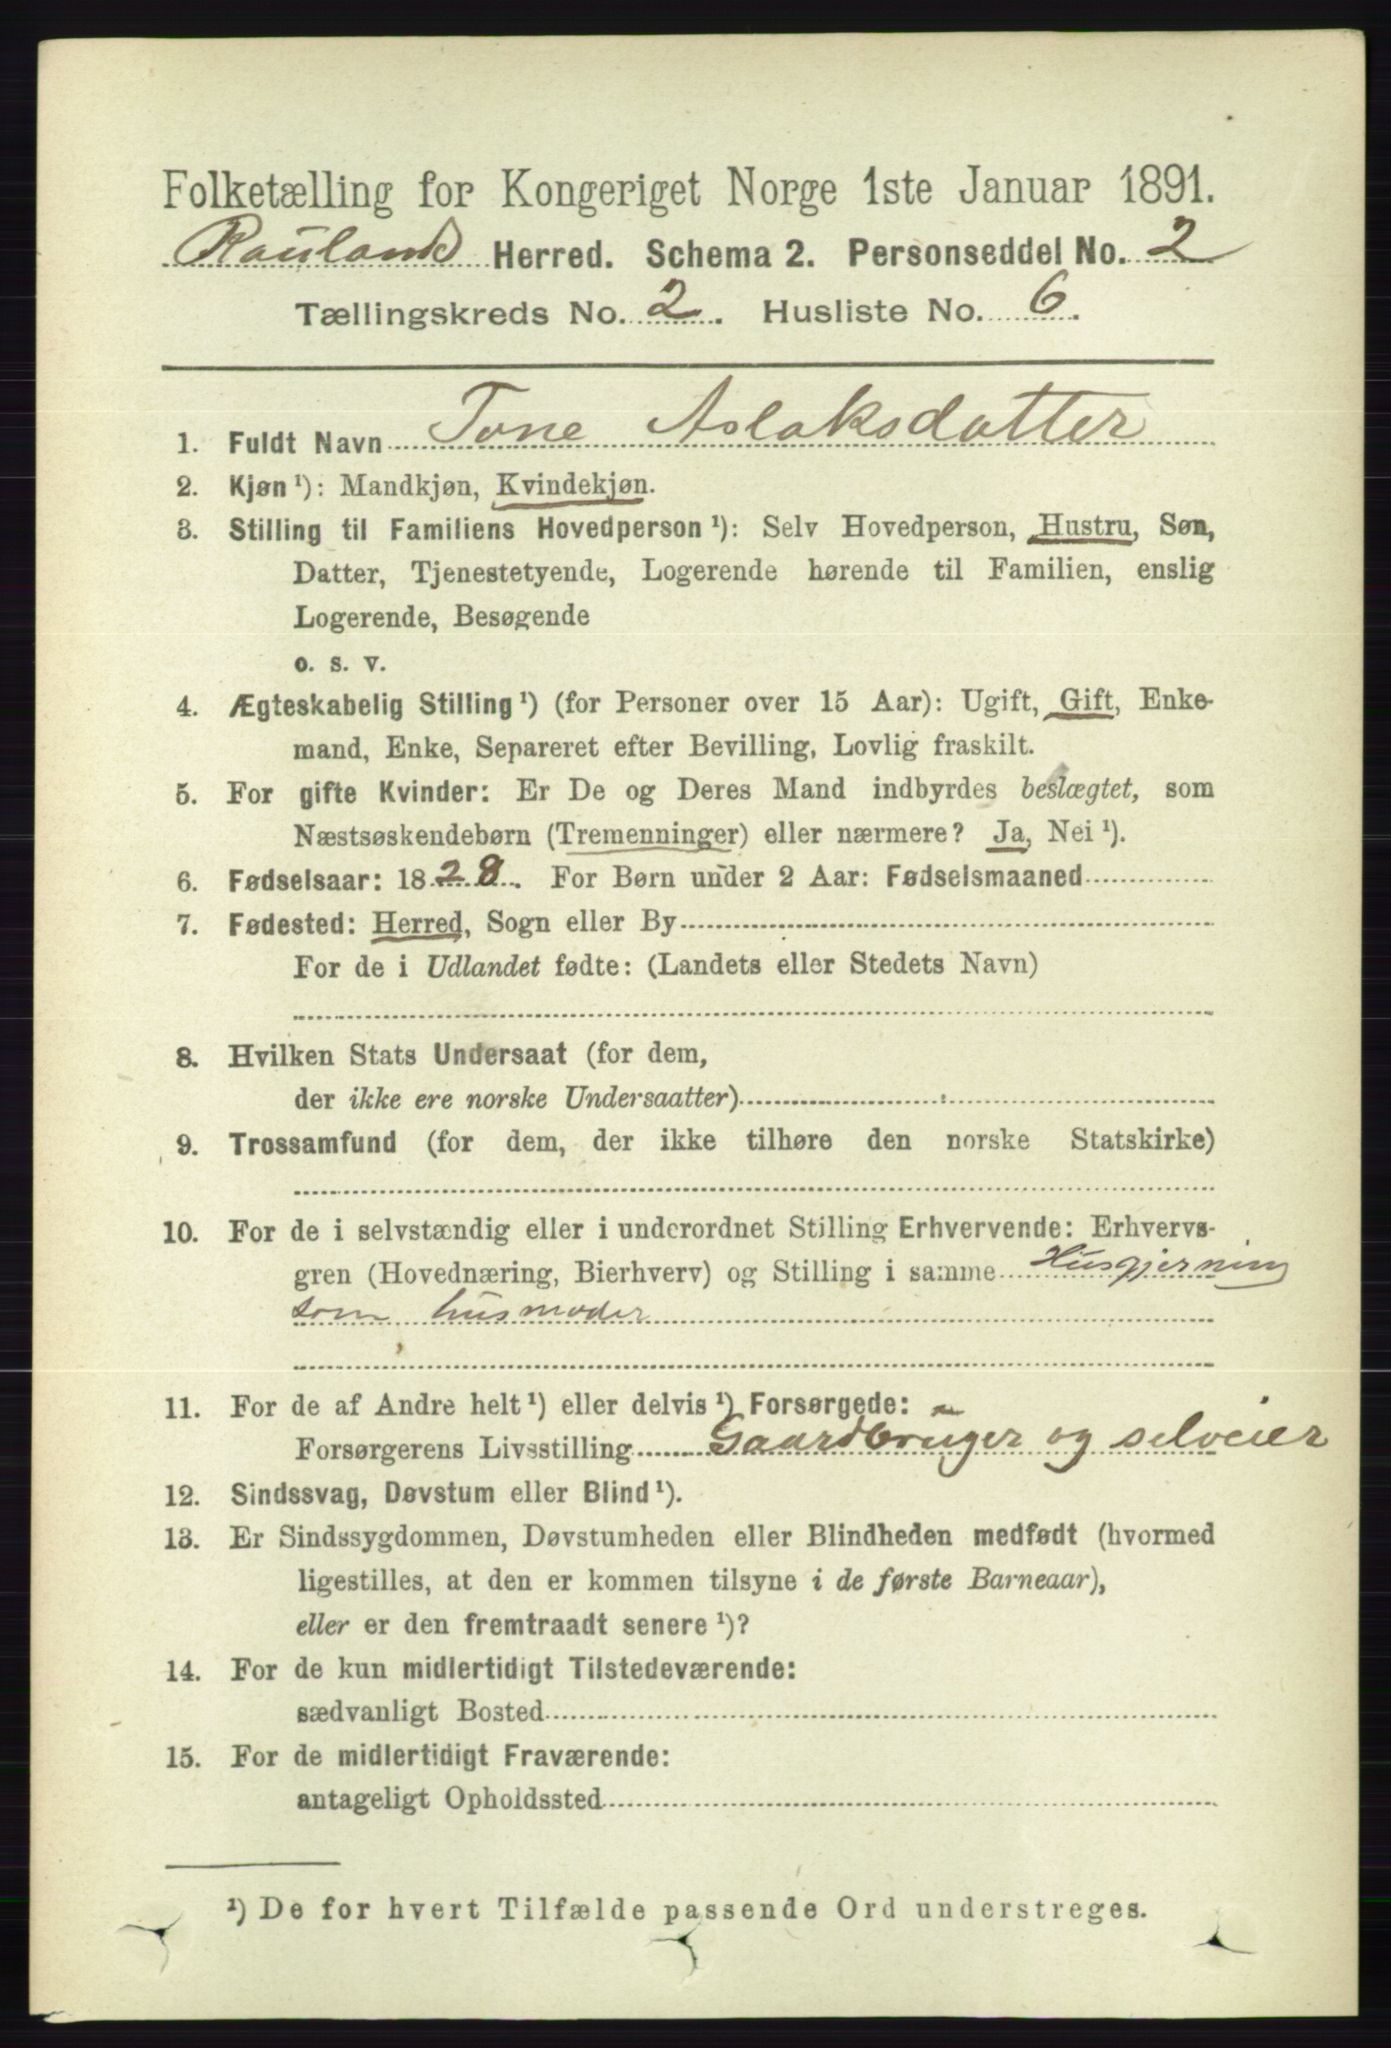 Folketælling for Kongeriget Norge 1ste Januar 1891.
Rauland Herred. Schema 2. Personseddel No. 2
Tællingskreds No. 2. Husliste No. 6.
1. Fuldt Navn Tone Aslaksdatter
2. Kjøn¹): Mandkjøn, Kvindekjøn.
3. Stilling til Familiens Hovedperson¹): Selv Hovedperson, Hustru, Søn,
Datter, Tjenestetyende, Logerende hørende til Familien, enslig
Logerende, Besøgende
o. s. v.
4. Ægteskabelig Stilling¹) (for Personer over 15 Aar): Ugift, Gift, Enke-
mand, Enke, Separeret efter Bevilling, Lovlig fraskilt.
5. For gifte Kvinder: Er De og Deres Mand indbyrdes beslægtet, som
Næstsøskendebørn (Tremenninger) eller nærmere? Ja, Nei¹).
6. Fødselsaar: 1828. For Børn under 2 Aar: Fødselsmaaned
7. Fødested: Herred, Sogn eller By
For de i Udlandet fødte: (Landets eller Stedets Navn)
8. Hvilken Stats Undersaat (for dem,
der ikke ere norske Undersaatter)
9. Trossamfund (for dem, der ikke tilhøre den norske Statskirke)
10. For de i selvstændig eller i underordnet Stilling Erhvervende: Erhvervs-
gren (Hovednæring, Bierhverv) og Stilling i samme Husgjerning
som husmoder
11. For de af Andre helt¹) eller delvis¹) Forsørgede:
Forsørgerens Livsstilling Gaardbruger og selveier
12. Sindssvag, Døvstum eller Blind¹).
13. Er Sindssygdommen, Døvstumheden eller Blindheden medfødt (hvormed
ligestilles, at den er kommen tilsyne i de første Barneaar),
eller er den fremtraadt senere¹)?
14. For de kun midlertidigt Tilstedeværende:
sædvanligt Bosted
15. For de midlertidigt Fraværende:
antageligt Opholdssted
¹) De for hvert Tilfælde passende Ord understreges.